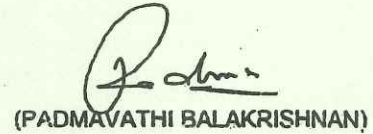 Padma
(PADMAVATHI BALAKRISHNAN)